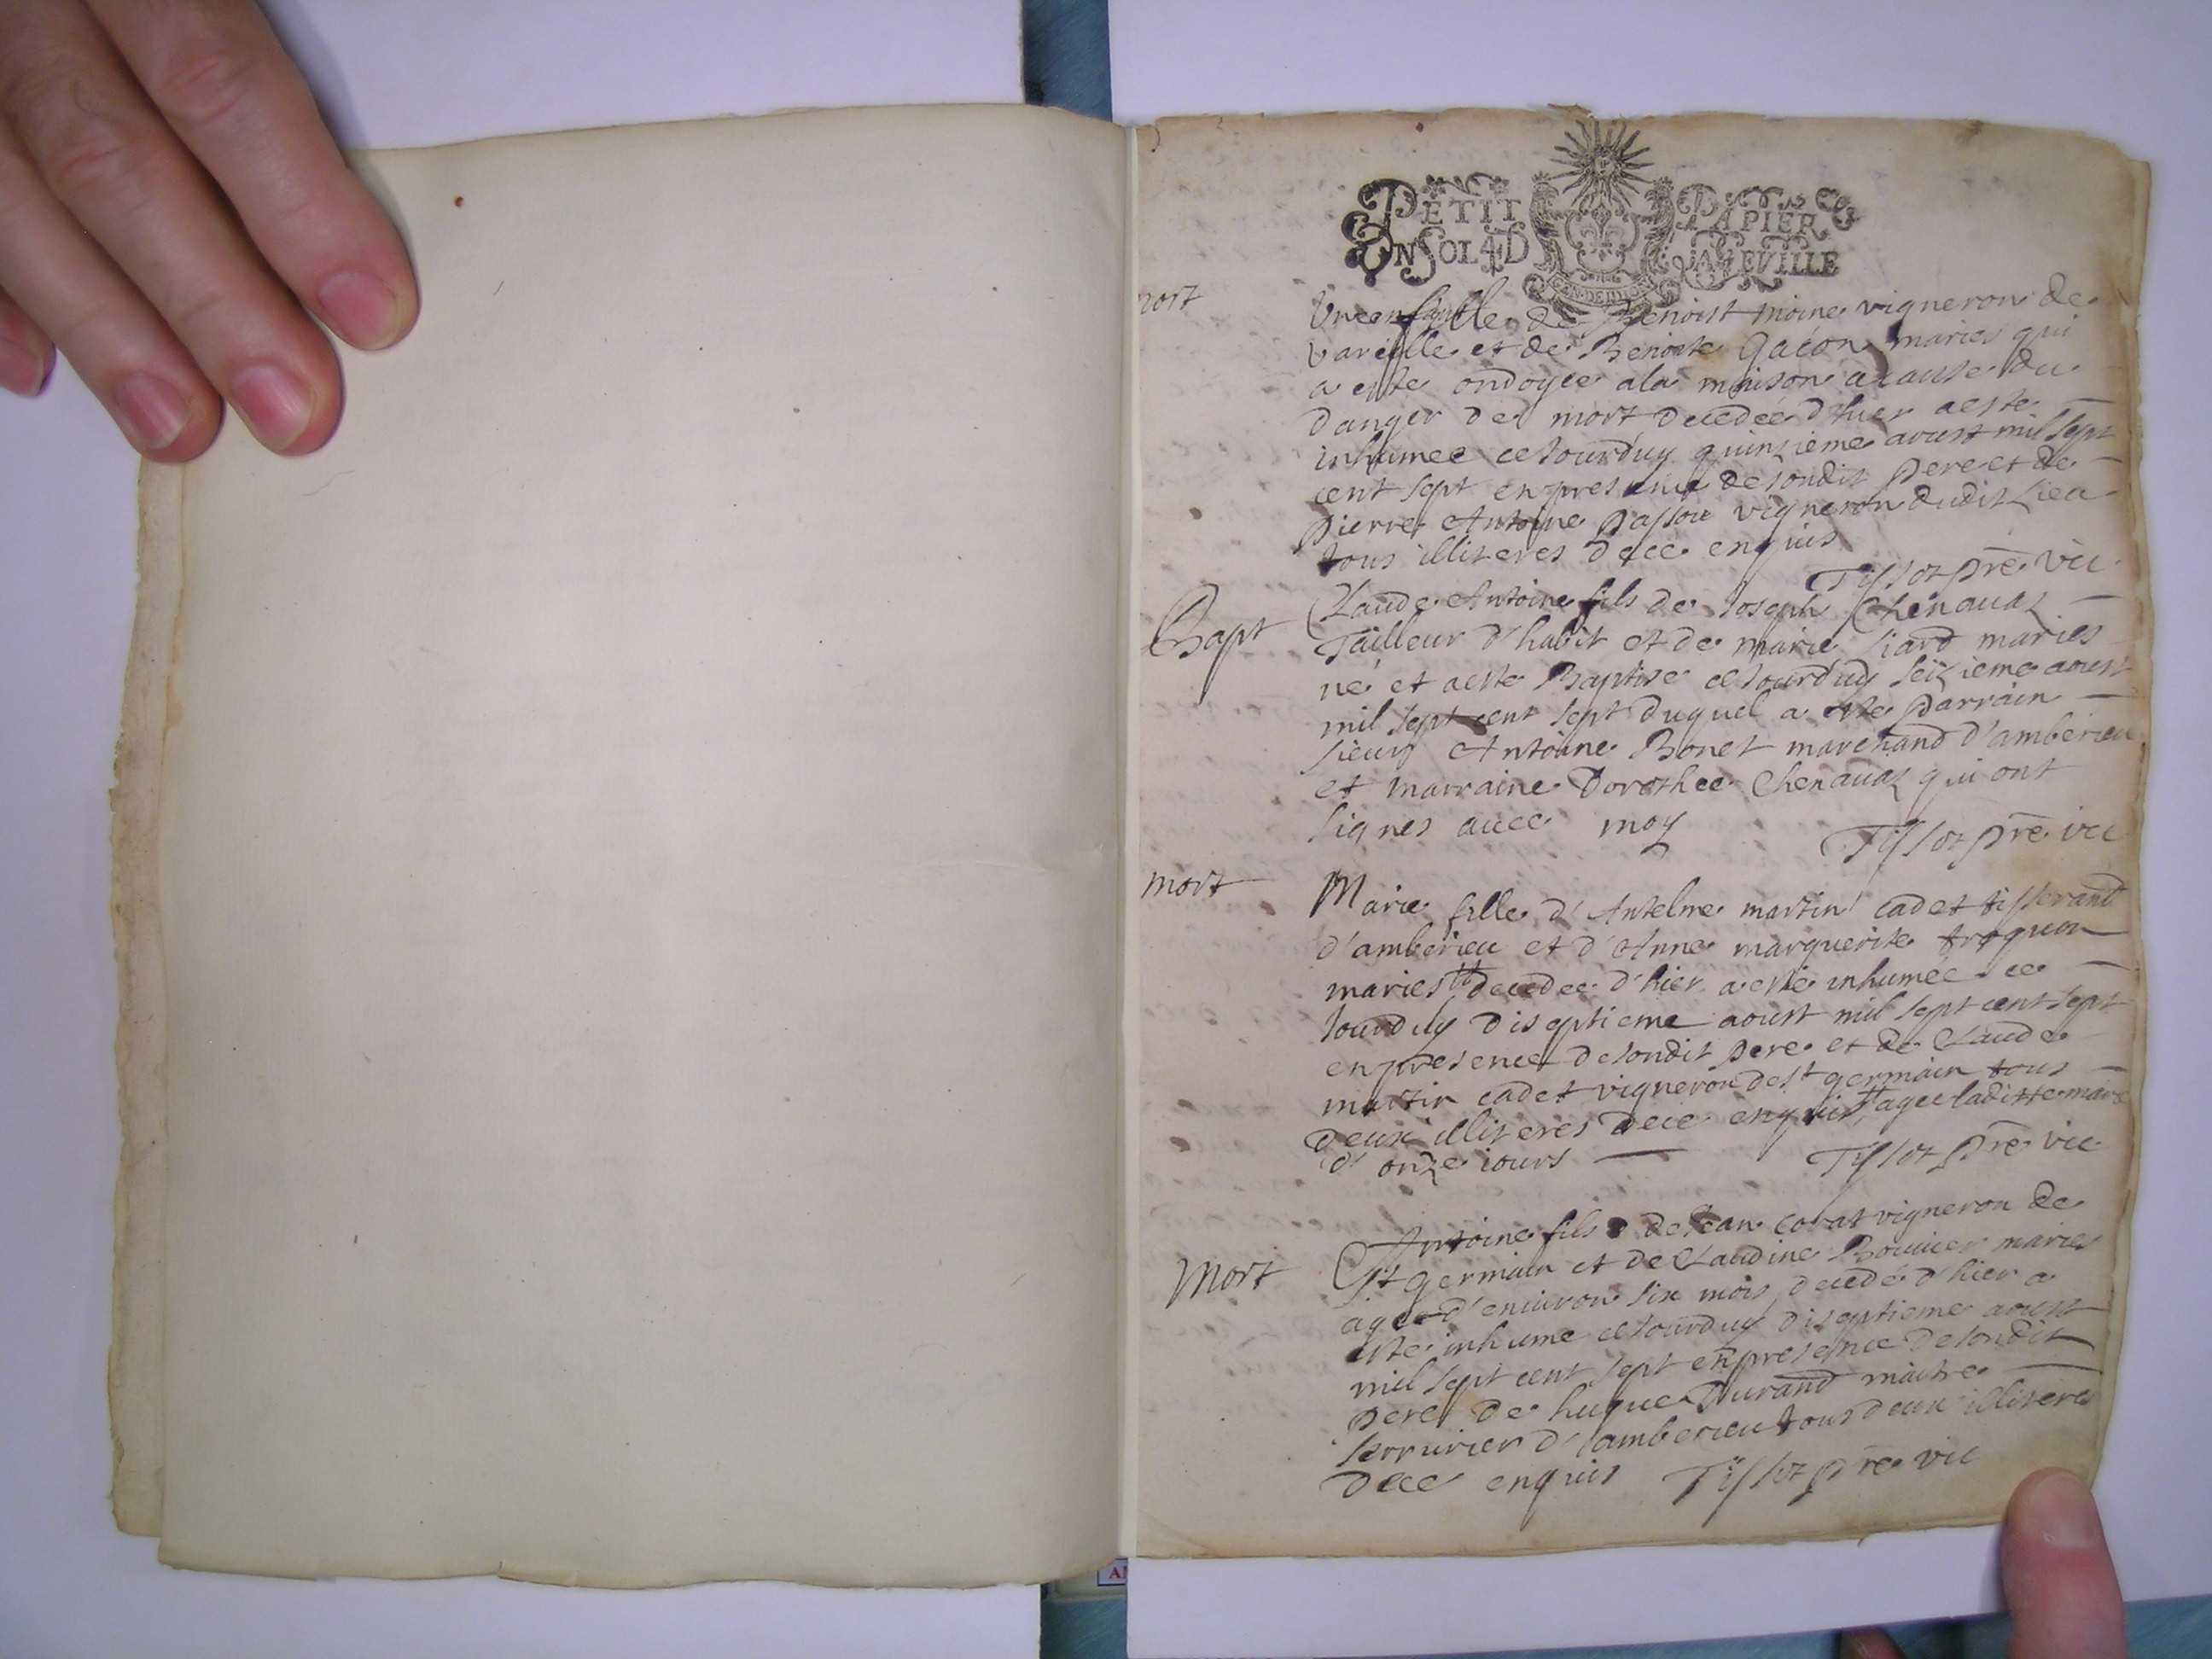 PETIT PAPIER
UN SOL 4 D LA FEVILLE
GEN. DE DIION
mort
Une enfant fille de Benoist moine vigneron de
vareille et de Benoite Gacon maries qui
a este ondoyee a la maison a cause du
danger de mort decedée d'hier a este
inhumee ce Jourd'uy quinzieme aoust mil sept
cent sept en presence de sondit pere et de
pierre Antoine vigneron dudit Lieu
tous illiteres de ce enquis
Tissot pre vic
Bapt
Claude Antoine fils de Joseph Chenauaz
Tailleur d'habit et de marie Siard maries
né et a este Baptise ce Jourduy seizieme aoust
mil sept cent sept duquel a este parrain
sieur Antoine Bonet marchand d'amberieu
et marraine Dorothee Chenauaz qui ont
signes auec moy
Tissot pre vic
mort
Marie fille d'Antelme martin cadet tisserand
d'amberieu et d'Anne marguerite
maries decedee d'hier a esté inhumée ce
Jourduy diseptieme aoust mil sept cent sept
en presence de sondit pere et de Claude
martin cadet vigneron de st germain tous
deux illiteres de ce enquis agee laditte marie
d'onze iours
Tissot pre vic
Mort
Antoine fils de Jean vigneron de
St germain et de Claudine Bouuier maries
agee d'enuiron six mois decedé d'hier a
este inhume ce Jourduy diseptieme aoust
mil sept cent sept en presence de sondit
pere de hugue Durand maitre
serrurier d'amberieu tous deux illiteres
de ce enquis Tissot pre vic